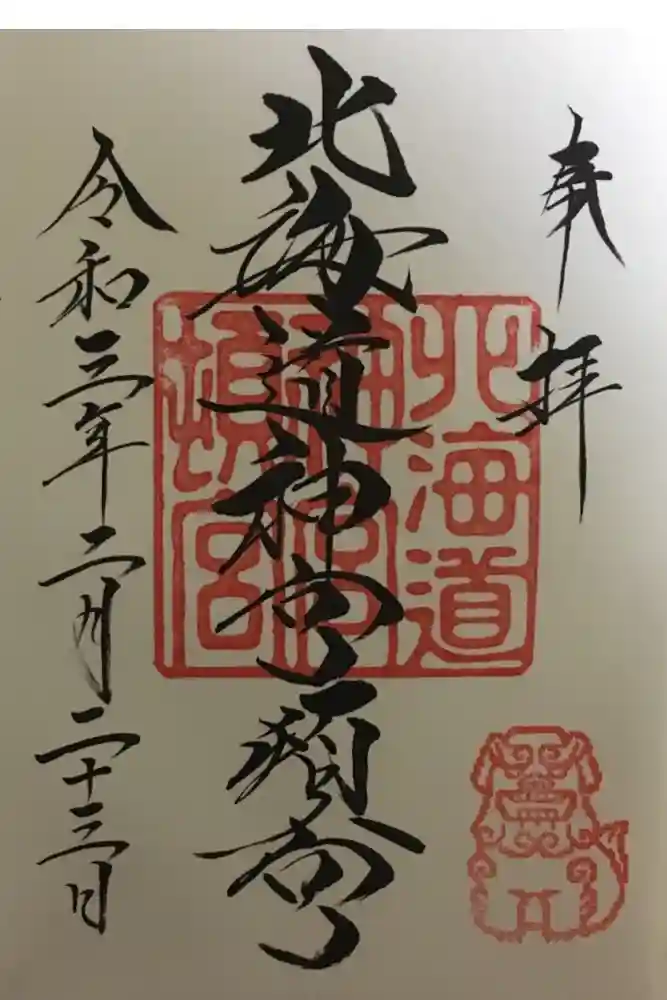 奉拝
北海道神宮頓宮
北海道
神宮
頓宮
令和三年二月二十三日